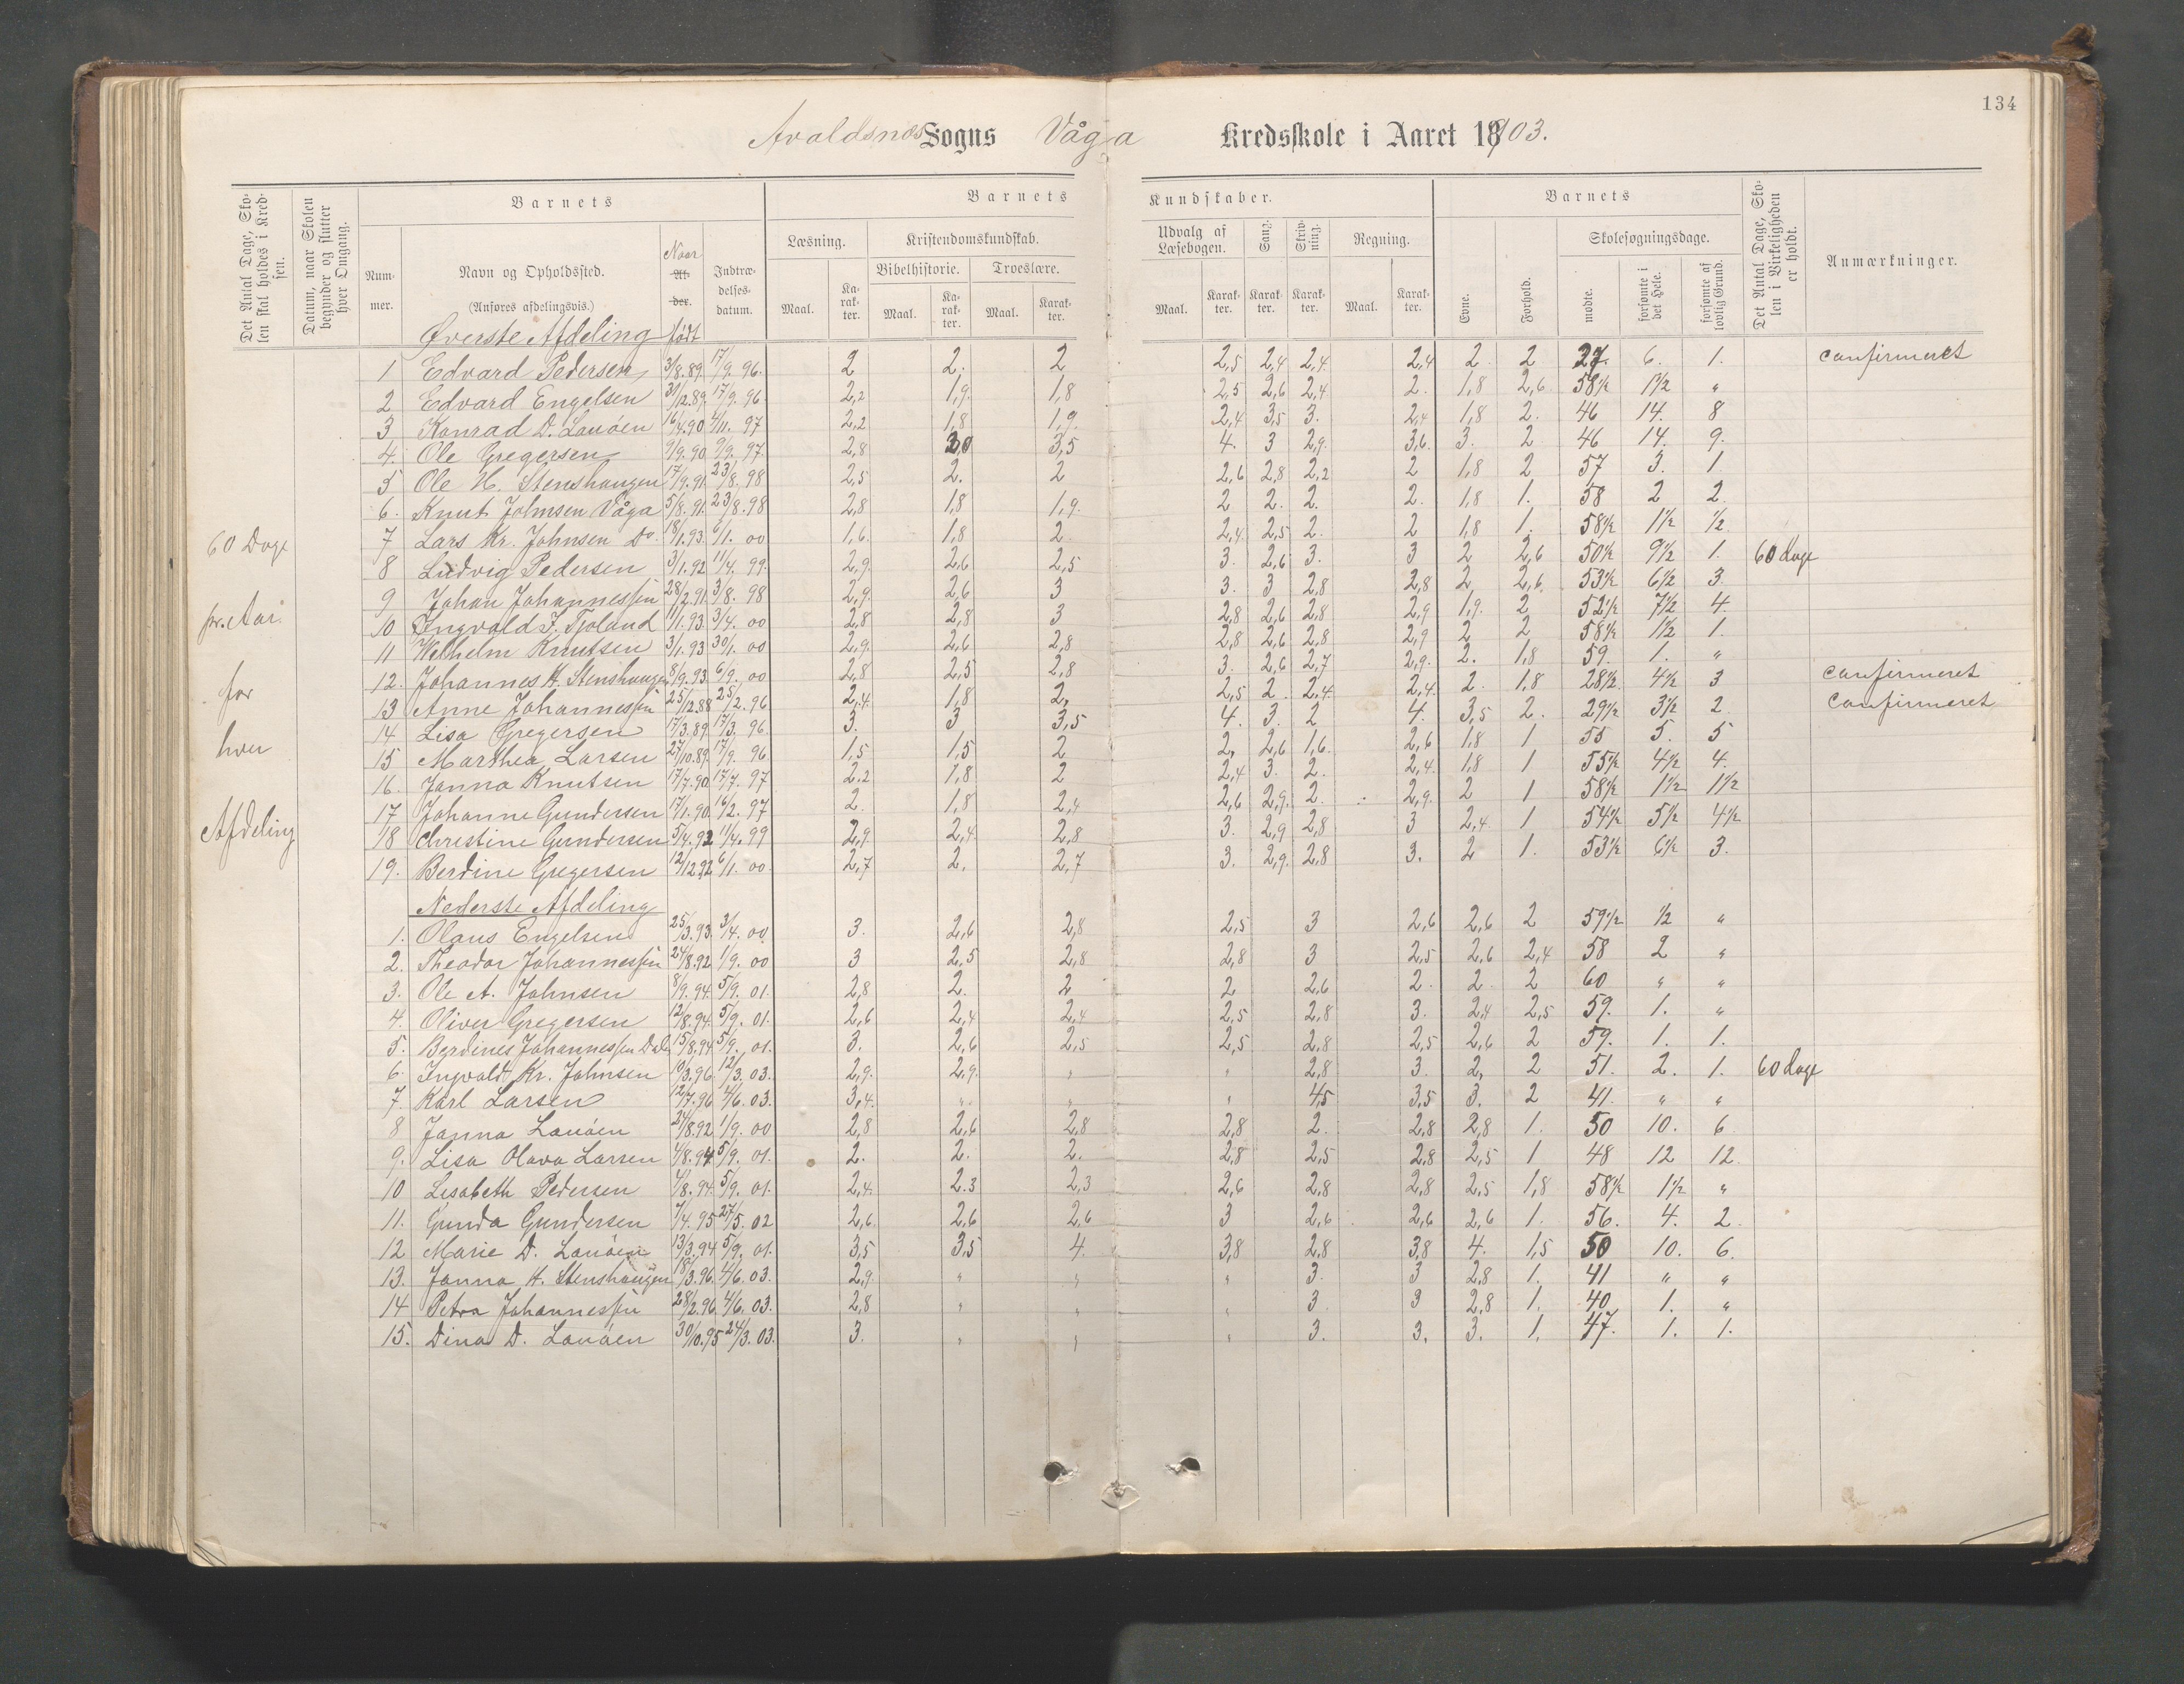 134
Avaldsnæs Sogns Våga Kredsskole i Aaret 1903.
Det Antal Dage, Skolen skal holdes i Kredsen.
Datum, naar Skolen begynder og slutter hver Omgang.
Barnets
Barnets Kundskaber.
Barnets
Det Antal Dage, Skolen i Virkeligheden er holdt.
Anmærkninger.
Nummer.
Navn og Opholdssted.
(Anføres afdelingsvis.)
Naar Alder. født
Indtrædelsesdatum.
Læsning.
Kristendomskundskab.
Bibelhistorie.
Troeslære.
Udvalg af Læsebogen.
Sang.
Skrivning.
Regning.
Evne.
Forhold.
Skolesøgningsdage.
Maal.
Karakter.
Maal.
Karakter.
Maal.
Karakter.
Maal.
Karakter.
Karakter.
Karakter.
Maal.
Karakter.
mødte.
forsømte i det Hele.
forsømte af lovlig Grund.
Øverste Afdeling
60 Dage
pr. Aar.
for
hver
Afdeling
1 Edvard Pedersen 3/8.89. 17/9. 96. 2 2. 2 2,5 2,4 2,4. 2,4 2. 2 6. 1. confirmeret
2 Edvard Engelsen 30/12.89. 17/9. 96. 2,2 1,9. 1,8 2,5 2,6 2,4 2. 1,8 2,6 58½ 1½ "
3 Konrad D. Lauöen 16/4.90. 4/11. 97 2,2 1,8 1,9. 2,4 3,5 3. 2,4 1,8 2. 46 14. 8
4. Ole Gregersen 9/9. 90. 9/9. 97. 2,8 3,5 4. 3 2,9. 3,6. 3. 2 46 14. 9.
5 Ole H. Stenshaugen 17/9. 91. 23/8. 98 2,5 2. 2 2,6 2,8 2,2 2 1,8 2 57 3. 1
6. Knut Johnsen Våga 5/8. 91. 23/8. 98 2,8 1,8 1,9. 2 2. 2. 2. 1,8 1. 58 2 2
7 Lars Kr. Johnsen Do. 18/1. 93. 6/1. 00 1,6. 1,8 2. 2,4 2,5 2. 2 1,8 1. 58½ 1½ ½
8 Ludvig Pedersen 3/1. 92 11/4. 99. 2,9. 2,6 2,5 3. 2,6 3. 3 2 2,6 50½ 9½ 1. 60 dage
9 Johan Johannessen 28/2. 91. 3/8. 98 2,9. 2,6 3 3. 3 2,8 2,8 2 2,6 53½ 6½ 3.
10 Ingvald J. Tjoland 11/1. 93. 3/4. 00 2,8 2,8 3 2,8 2,6 2,8 2,9 1,9. 2 52½ 7½ 4.
11 Wilhelm Knutsen 3/1. 93 30/1. 00 2,9. 2,6 2,8 2,8 2,6 2,8 2,9 2 2 58½ 1½ 1.
12. Johannes H. Stenshaugen 8/9. 93. 6/9. 00 2,8 2,5 2,8 3. 2,6 2,7 2,9. 2. 1,8 59. 1. "
13 Anne Johannessen 25/12.88 25/2. 96 2,4. 1,8 2, 2,5 2. 2,4. 2,4. 2. 1,8 28½ 4½ 3 confirmeret
14 Lisa Gregersen 17/3. 89. 17/3. 96. 3. 3 3,5 4. 3. 2 4. 3,5 2. 29½ 3½ 2 confirmeret
15 Marthea Larsen 27/10.89. 17/9. 96 1,5 1,5 2 2, 2,6 1,6. 2,6 1,8 1 55 5. 5
16. Janna Knutsen 17/7. 90. 17/7. 97 2.2 1,8 2 2,4 3. 2. 2,4. 1,8 1 55½ 4½ 4.
17 Johanne Gundersen 17/1. 90. 16/2. 97 2. 1,8 2,4 2,6 2,9. 2. 2,9. 2 1 58½ 1½ 1½
18 Christine Gundersen 5/4. 92 11/4. 99 2,9. 2,4 2,8 3. 2,9 2,8 3 2,4. 1 54½ 5½ 4½
19. Berdine Gregersen 6/1. 00. 2,7 2. 2,7 3. 2,9. 2,8 3. 2 1. 53½ 6½ 3.
Nederste Afdeling
1. Olaus Engelsen 25/3. 93. 3/4. 00. 3. 2,6 2,8 2,5 3 2,6 2,6 2 59½ ½ "
2. Theodor Johannessen 24/8.92 1/9. 00 3 2,5 2,8 2,8 3 2,5 2,6 2,4 58 2 "
3. Ole A. Johnsen 8/9. 94. 5/9. 01. 2,8 2. 2 2 2,6 2. 2. 2 60 " "
4. Oliver Gregersen 12/8.94. 5/9. 01. 2,6 2,4 2,4 2,5 2,8 3. 2,4 2,5 59. 1. "
5. Berdines Johannessen 15/8.94 5/9. 01. 3. 2,6 2,5 2,5 2,8 2,5 2,6 2 59. 1. 1.
6. Ingvald Kr. Johnsen 10/3.96. 12/3. 03. 2,9. 2,9. " " 2,8 3. 2, 2 51. 2. 1. 60 dage
7. Karl Larsen 12/7.96 4/6. 03. 3,4. " " " 4,5 3,5 3. 2 41. " "
8 Janna Lauöen 24/8.92 1/9. 00 2,8 2,6 2,8 2,8 2. 2,8 2,8 1. 50 10. 6
9. Lisa Olava Larsen 4/8. 94 5/9. 01. 2. 2. 2. 2,8 2,5 2,8 2,5 1 48 12 12
10 Lisabeth Pedersen 4/8. 94. 5/9. 01. 2,4. 2.3 2,3 2,6 2,8 2,8 2,5 1,8 58½ 1½ "
11. Gunda Gundersen 7/4. 95 27/5. 02 2,6. 2,6 2,6 3 2,6 2,6 2,6 1. 56. 4. 2
12 Marie D. Lauöen 13/3.94 5/9. 01. 3,5 3,5 4. 3,8 2,8 3,8 4. 1,5 50 10. 6.
13. Janna H. Stenshaugen 18/3.96. 4/6. 03. 2,9. " " " 3. 3 2,8 1. 41 " "
14 Petra Johannessen 28/2.96 4/6. 03. 2,8 " " " 3. 3 2,8 1. 40 1. "
15. Dina D. Lauöen 30/10.95 24/3. 03. 3. " " " 3. 3. 3. 1. 47. 1. 1.